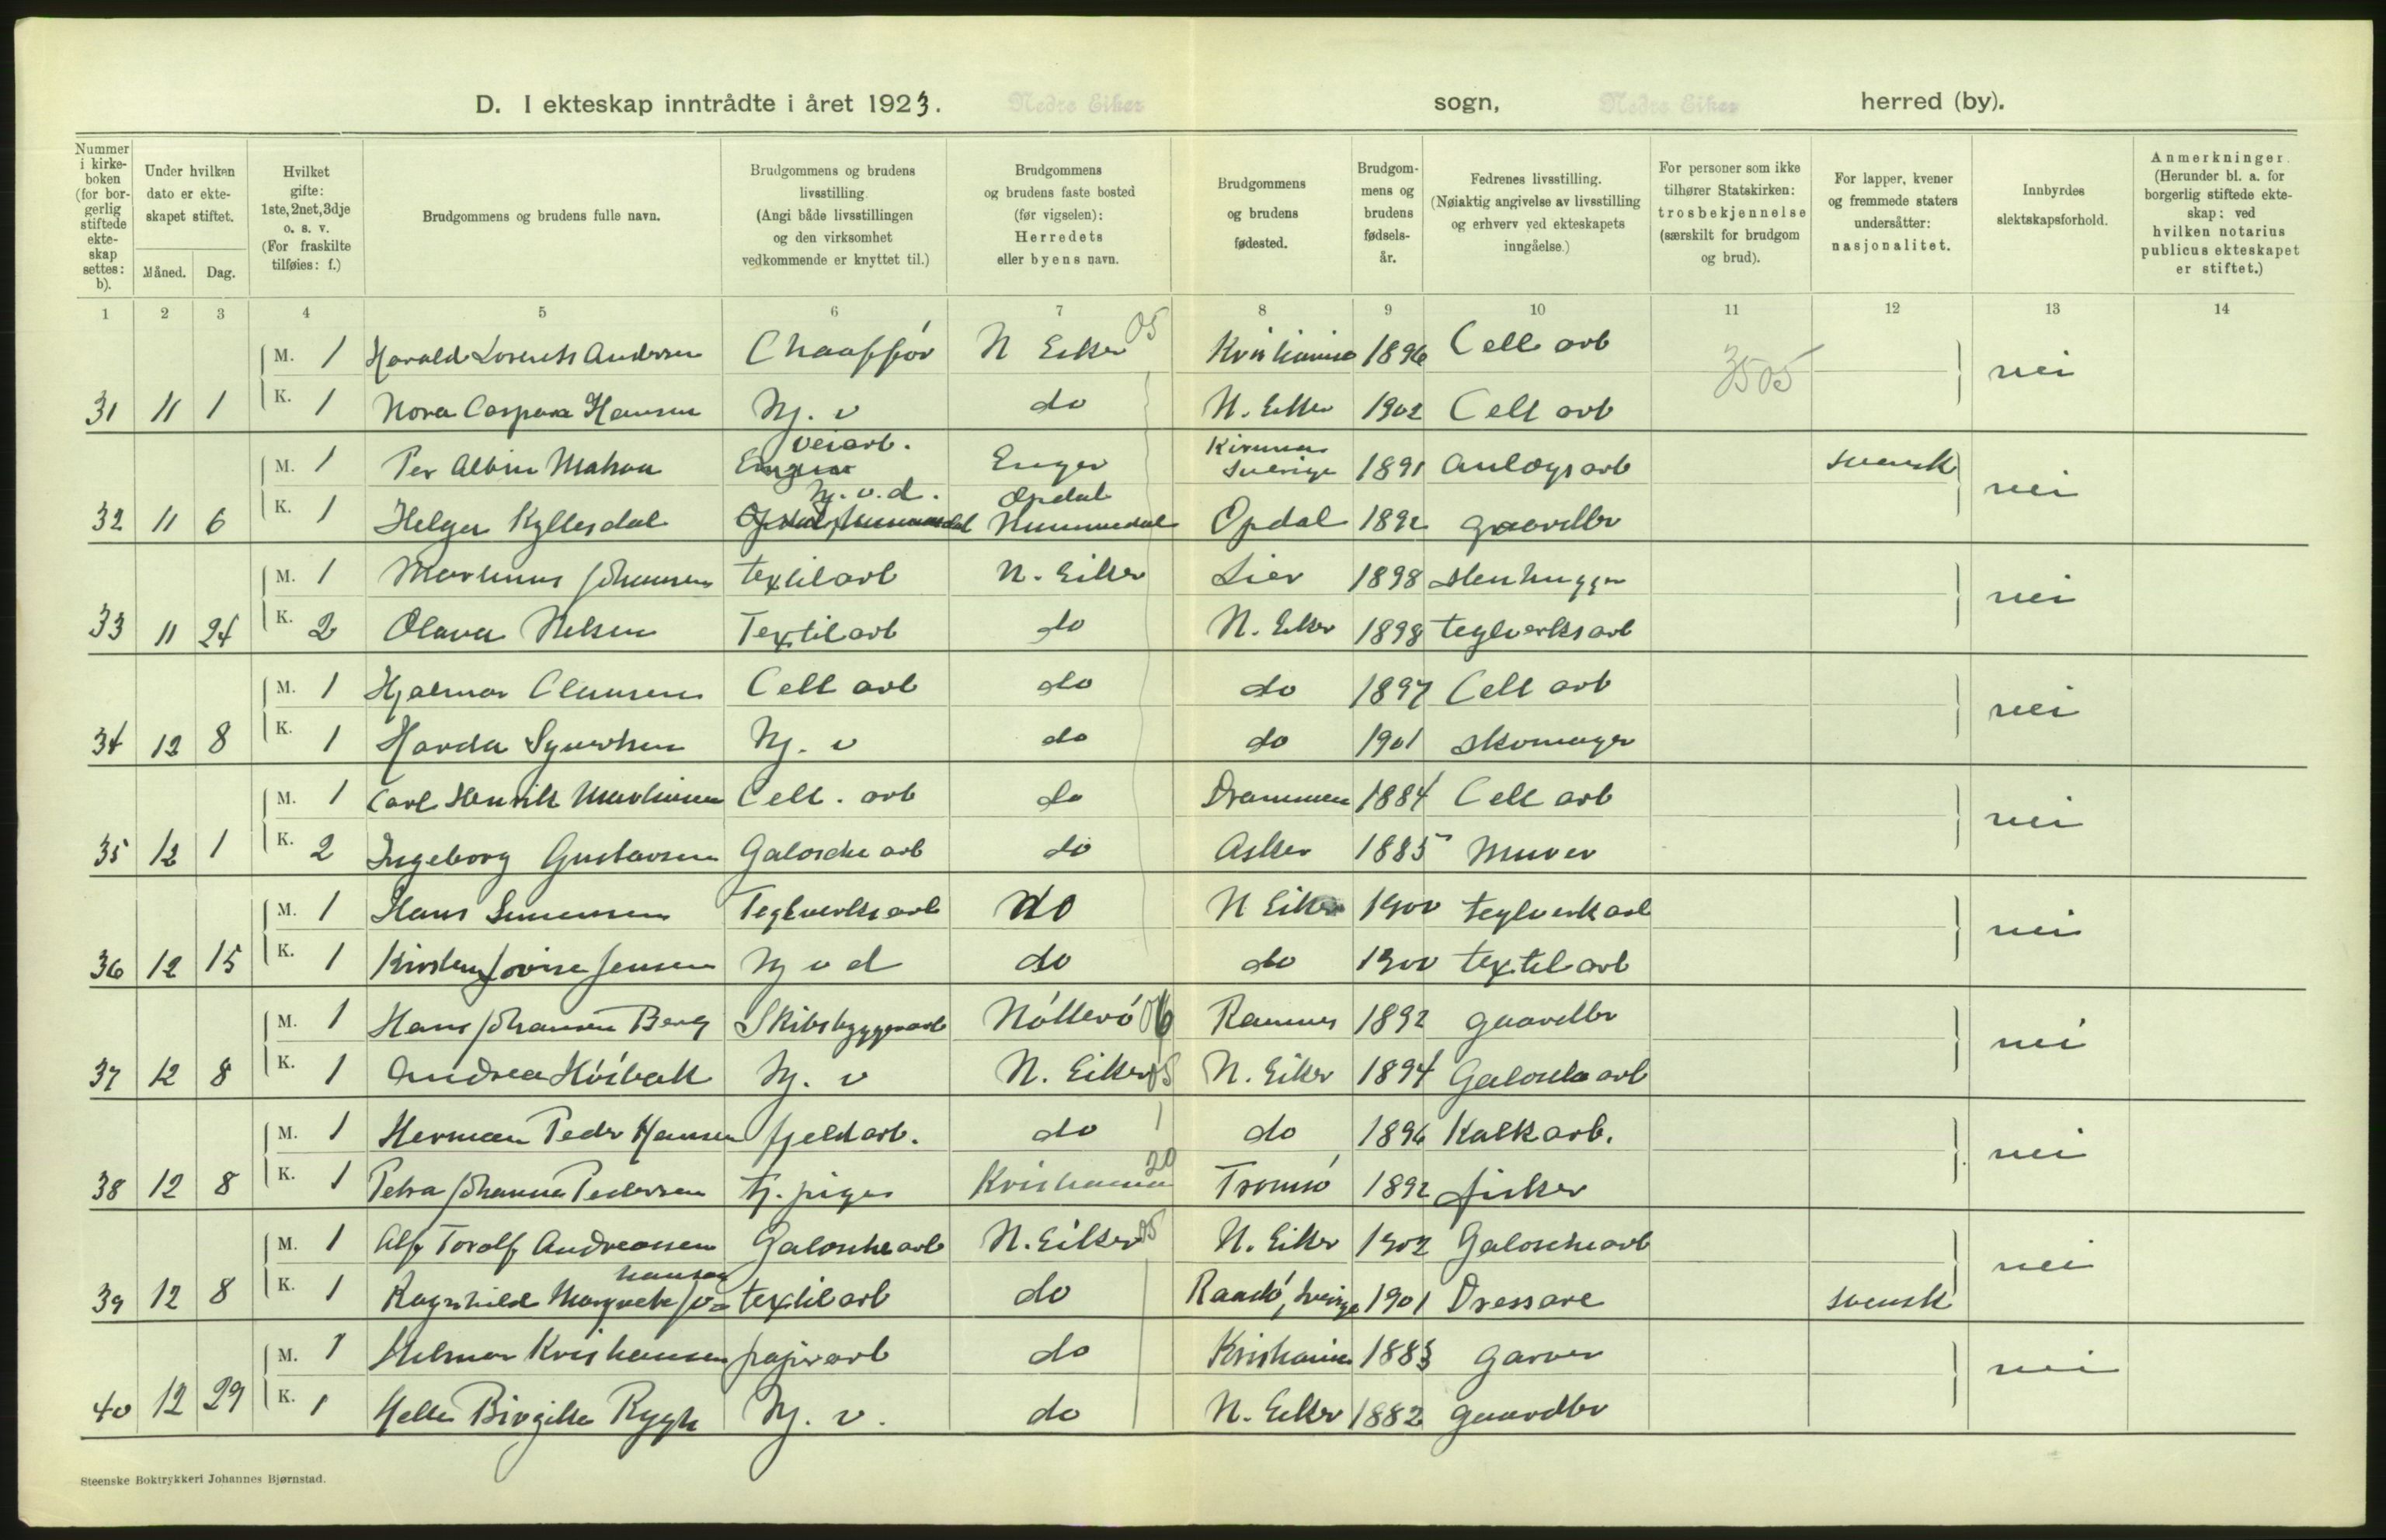 D. I ekteskap inntrådte i året 1923. Nedre Eiker sogn, Nedre Eiker herred (by).
Nummer i kirkeboken (for borgerlig stiftede ekteskap settes: b).
Under hvilken dato er ekteskapet stiftet.
Måned. Dag.
Hvilket gifte: 1ste, 2net, 3dje o. s. v. (For fraskilte tilføies: f.)
Brudgommens og brudens fulle navn.
Brudgommens og brudens livsstilling. (Angi både livsstillingen og den virksomhet vedkommende er knyttet til.)
Brudgommens og brudens faste bosted (før vigselen): Herredets eller byens navn.
Brudgommens og brudens fødested.
Brudgommens og brudens fødselsår.
Fedrenes livsstilling. (Nøiaktig angivelse av livsstilling og erhverv ved ekteskapets inngåelse.)
For personer som ikke tilhører Statskirken: trosbekjennelse (særskilt for brudgom og brud).
For lapper, kvener og fremmede staters undersåtter: nasjonalitet.
Innbyrdes slektskapsforhold.
Anmerkninger. (Herunder bl. a. for borgerlig stiftede ekteskap: ved hvilken notarius publicus ekteskapet er stiftet.)
1 2 3 4 5 6 7 8 9 10 11 12 13 14
M. 1 Harald Lorents Andersen Chauffór N Eiker 05 Kristiania 1896 Cell arb 3505 nei
31 11 1 K. 1 Nora Caspara Hansen Hj. v do N. Eiker 1902 Cell arb
M. 1 Per Albin veiarb. Enger Sverige 1891 Anlægsarb svensk nei
32 11 6 K. 1 Helga Kyllesdal Hj. v. d. Opdal Nummedal Opdal 1892 gaardbr
M. 1 Marthinus Johansen textilarb N. Eiker Lier 1898 Stenhugger nei
33 11 24 K. 2 Olava Nilsen Textilarb do N. Eiker 1898 teglverksarb
M. 1 Hjalmar Clausen Cell arb do do 1897 Cell arb nei
34 12 8 K. 1 Harda Syvertsen Hj. v do do 1901 skomager
M. 1 Carl Henrik Marthinsen Cell. arb do Drammen 1884 Cell arb nei
35 12 1 K. 2 Ingeborg Gustavsen Galosche arb do Asker 1885 Murer
M. 1 Hans Simensen Teglverksarb do N Eiker 1900 teglverkarb nei
36 12 15 K. 1 Kirsten Lovise Jensen Hj v d do do 1900 textilarb
M. 1 Hans Johansen Berg Skibsbyggerarb Nótteró 06 Ramnes 1892 gaardbr nei
37 12 8 K. 1 Andrea Hóibakk Hj. v N. Eiker 05 N. Eiker 1894 Galoschearb
M. 1 Herman Peder Hansen fjeldarb. do do 1896 Kalkarb. nei
38 12 8 K. 1 Petra Johanna Pedersen tj. pige Kristiania 20 Tromsó 1892 fisker
M. 1 Alf Torolf Andreassen Galoschearb N. Eiker 05 N. Eiker 1902 Galoschearb nei
39 12 8 K. 1 Ragnhild Margrete Johansen textilarb do Sverige 1901 Dressare svensk
M. 1 Hilmar Kristiansen papirarb do Kristiania 1883 garver nei
40 12 29 K. 1 Helle Birgitte Rygh Hj. v. do N. Eiker 1882 gaardbr
Steenske Boktrykkeri Johannes Bjørnstad.